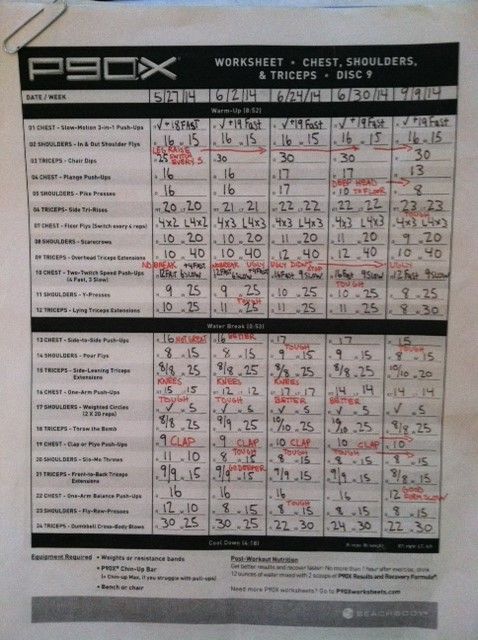 P90X
WORKSHEET • CHEST, SHOULDERS,
& TRICEPS • DISC 9
DATE / WEEK 5/27/14 6/2/14 6/24/14 6/30/14 9/9/14
Warm-Up (8:52)
01 CHEST - Slow-Motion 3-in-1 Push-Ups √ +18 FAST √ +19 Fast √ +19 Fast √ +19 Fast √ +19 Fast
02 SHOULDERS - In & Out Shoulder Flys 16 15 16 15 16 15 16 15 16 15
LEG RAISE
SWITCH
EVERY 5
03 TRICEPS - Chair Dips 25 30 30 30 30
04 CHEST - Plange Push-Ups 16 16 17 17 13
DEEP HEAD
TO FLOOR
05 SHOULDERS - Pike Presses 16 16 17 10 8
06 TRICEPS - Side Tri-Rises 20 20 21 21 22 22 22 22 23 23
TOUGH
07 CHEST - Floor Flys (Switch every 4 reps) 4x2 L4x2 4x3 L4x3 4x3 L4x3 4x3 L4x3 4x3 L4x3
08 SHOULDERS - Scarecrows 10 20 10 20 11 20 11 20 9 20
09 TRICEPS - Overhead Triceps Extensions 10 40 10 40 12 40 12 40 10 40
NO BREAK NO BREAK UGLY UGLY DIDN'T STOP UGLY
10 CHEST - Two-Twitch Speed Push-Ups
(4 Fast, 3 Slow) 12 Fast 9 Slow 16 Fast 9 Slow 16 Fast 9 Slow 12 Fast 9 Slow
TOUGH
11 SHOULDERS - Y-Presses 9 25 9 25 10 25 10 25 8 25
TOUGH
12 TRICEPS - Lying Triceps Extensions 10 25 11 25 11 25 11 25 8 30
Water Break (0:53)
13 CHEST - Side-to-Side Push-Ups 16 NOT GREAT 16 BETTER 17 17 15
TOUGH TOUGH
14 SHOULDERS - Pour Flys 8 15 8 15 9 15 9 15 8 15
15 TRICEPS - Side-Leaning Triceps
Extensions 8/8 25 8/8 25 8/8 25 8/8 25 10/10 20
KNEES KNEES KNEES
16 CHEST - One-Arm Push-Ups 15 15 12 12 17 17 14 14 14 14
TOUGH TOUGH BETTER BETTER
17 SHOULDERS - Weighted Circles
(2 X 20 reps) √ 5 √ 5 √ 5 √ 5 √ 5
18 TRICEPS - Throw the Bomb 8/8 25 9/9 25 25 25 8/8 25
19 CHEST - Clap or Plyo Push-Ups 9 CLAP 9 CLAP 10 CLAP 10 CLAP 10
TOUGH TOUGH TOUGH
20 SHOULDERS - Slo-Mo Throws 11 10 8 15 8 15 8 15 8 15
GO DEEPER
21 TRICEPS - Front-to-Back Triceps
Extensions 9/9 15 9/9 15 9/9 15 9/9 15 8/8 15
22 CHEST - One-Arm Balance Push-Ups 16 16 16 16 12 GOOD FORM SLOW
TOUGH
23 SHOULDERS - Fly-Row-Presses 8 15 8 15 8 15 8 15 8 15
24 TRICEPS - Dumbbell Cross-Body Blows 30 25 30 25 22 30 24 30 22 30
Cool Down (4:18)
Equipment Required • Weights or resistance bands
• P90X® Chin-Up Bar
(+ Chin-Up Max, if you struggle with pull-ups)
• Bench or chair
Post-Workout Nutrition
Get better results and recover faster: No more than 1 hour after exercise, drink
12 ounces of water mixed with 2 scoops of P90X Results and Recovery Formula®.
Need more P90X worksheets? Go to P90Xworksheets.com.
BEACHBODY